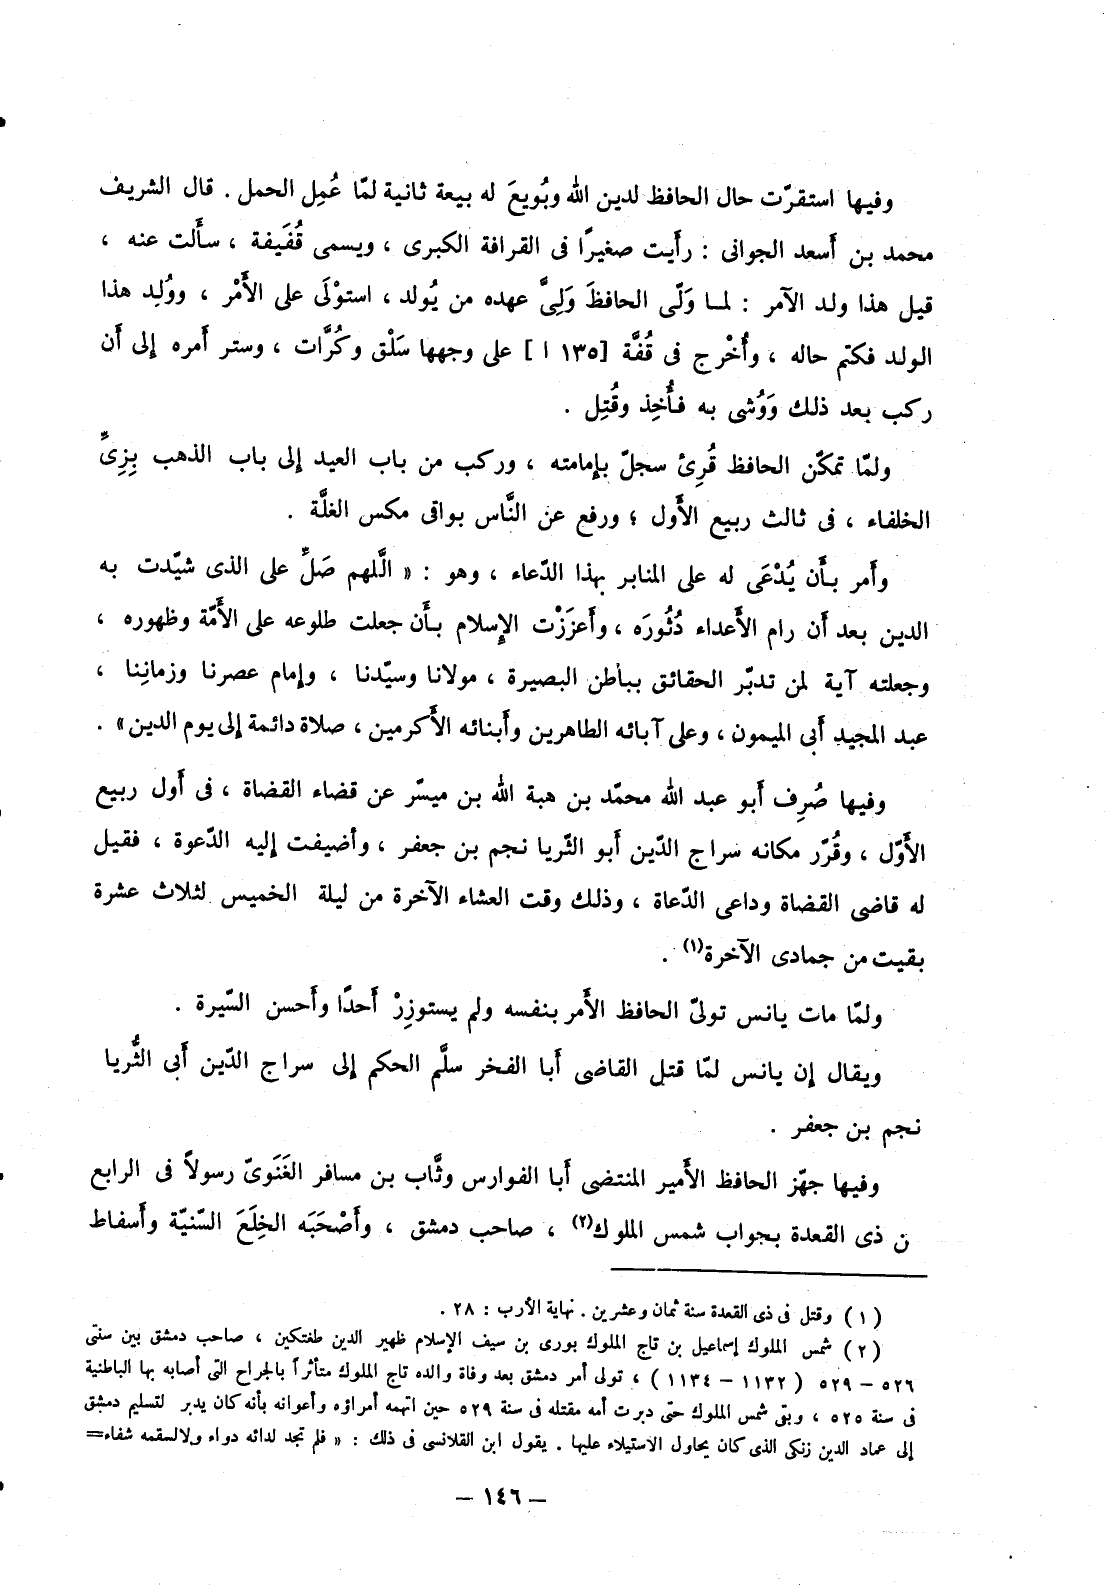 وفيها استقرّت حال الحافظ لدين الله وبُويعَ له بيعة ثانية لمّا عُمِل الحمل . قال الشريف
محمد بن أَسعد الجوانى : رأَيت صغيرًا فى القرافة الكبرى ، ويسمى قُفَيفة ، سأَلت عنه ،
قيل هذا ولد الآمر : لمـا وَلّى الحافظَ وَلِىَّ عهده من يُولد ، استوْلَى على الأَمْر ، ووُلِد هذا
الولد فكتم حاله ، وأُخْرج فى قُفَّة [ ١٣٥ ا ] على وجهها سَلْق وكُرَّات ، وستر أَمره إلى أَن
ركب بعد ذلك وَوُشى به فأُخِذ وقُتِل .
ولمّا تمكّن الحافظ قُرِئ سجلّ بإمامته ، وركب من باب العيد إلى باب الذهب بِزِىِّ
الخلفاء ، فى ثالث ربيع الأَول ؛ ورفع عن النَّاس بواقى مكس الغلَّة .
وأَمر بـأَن يُدْعَى له على المنابر بهذا الدّعاء ، وهو : « اللَّهم صَلِّ على الذى شيّدت به
الدين بعد أَن رام الأَعداء دُثُورَه ، وأَعزَزْت الإِسلام بـأَن جعلت طلوعه على الأَمّة وظهوره ،
وجعلته آية لمن تدبّر الحقائق بباطن البصيرة ، مولانا وسيّدنا ، وإمام عصرنا وزمانِنا ،
عبد المجيد أَبى الميمون ، وعلى آبائه الطاهرين وأَبنائه الأَكرمين ، صلاة دائمة إلى يوم الدين » .
وفيها صُرِف أَبو عبد الله محمّد بن هبة الله بن ميسّر عن قضاء القضاة ، فى أَول ربيع
الأَوّل ، وقُرّر مكانه سراج الدّين أَبو الثّريا نجم بن جعفر ، وأضيفت إليه الدّعوة ، فقيل
له قاضى القضاة وداعى الدّعاة ، وذلك وقت العشاء الآخرة من ليلة الخميس لثلاث عشرة
بقيت من جمادى الآخرة(١) .
ولمّا مات يانس تولىّ الحافظ الأَمر بنفسه ولم يستوزِرْ أَحدًا وأَحسن السّيرة .
ويقال إن يانس لمّا قتل القاضى أَبا الفخر سلَّم الحكم إلى سراج الدّين أَبى الثُّريا
نجم بن جعفر .
وفيها جهّز الحافظ الأَمير المنتضى أَبا الفوارس وثَّاب بن مسافر الغَنَوىّ رسولاً فى الرابع
ن ذى القعدة بجواب شمس الملوك(٢) ، صاحب دمشق ، وأَصْحَبَه الخِلَعَ السّنيّة وأَسفاط
( ١ ) وقتل فى ذى القعدة سنة ثمان وعشرين . نهاية الأرب : ٢٨ .
( ٢ ) شمس الملوك إسماعيل بن تاج الملوك بورى بن سيف الإسلام ظهير الدين طغتكين ، صاحب دمشق بين سنتى
٥٢٦ – ٥٢٩ ( ١١٣٢ – ١١٣٤ ) ، تولى أمر دمشق بعد وفاة والده تاج الملوك متأثراً بالجراح التى أصابه بها الباطنية
فى سنة ٥٢٥ ، وبقى شمس الملوك حتى دبرت أمه مقتله فى سنة ٥٢٩ حين اتهمه أمراؤه وأعوانه بأنه كان يدبر لتسليم دمشق
إلى عماد الدين زنكى الذى كان يحاول الاستيلاء عليها . يقول ابن القلانسى فى ذلك : « فلم تجد لدائه دواء ولالسقمه شفاء=
– ١٤٦ –